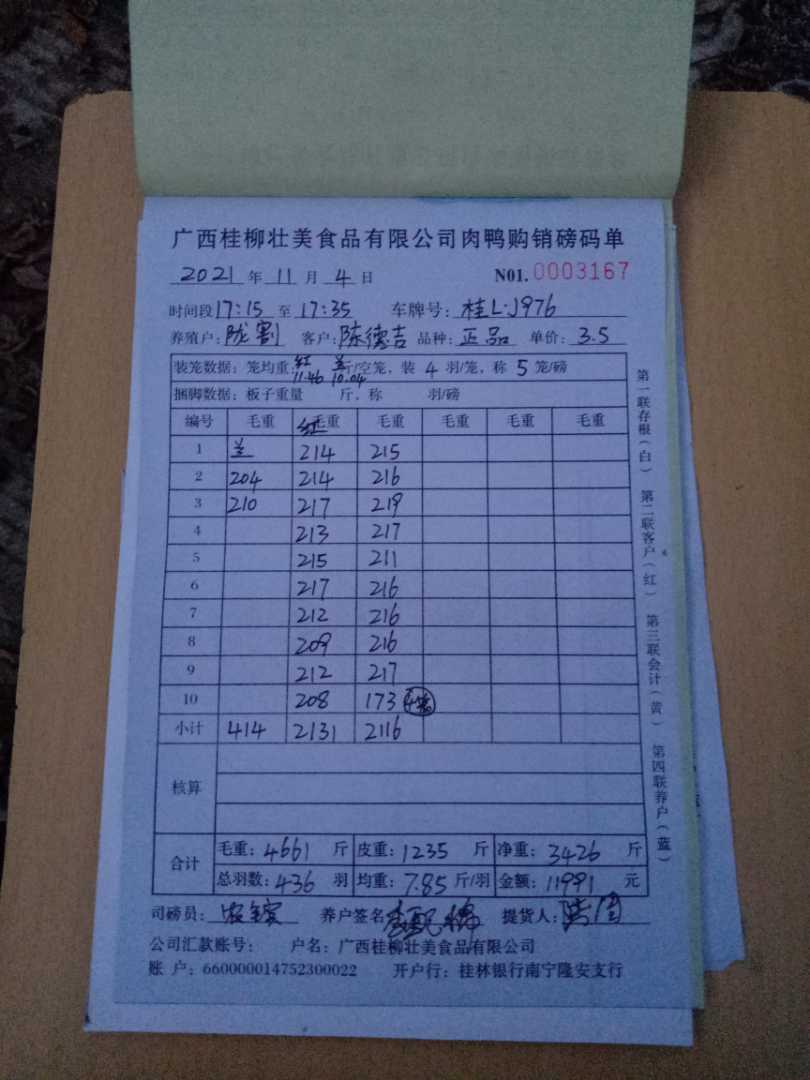 广西桂柳壮美食品有限公司肉鸭购销磅码单
2021 年 11 月 4 日 N01. 0003167
时间段 17:15 至 17:35 车牌号: 桂L·J976
养殖户: 陇割 客户: 陈德吉 品种: 正品 单价: 3.5
装笼数据: 笼均重: 红 11.46 兰 10.04 斤/空笼, 装 4 羽/笼, 称 5 笼/磅
捆脚数据: 板子重量 斤, 称 羽/磅
编号 毛重 红 毛重 毛重 毛重 毛重 毛重
1 兰 214 215
2 204 214 216
3 210 217 219
4 213 217
5 215 211
6 217 216
7 212 216
8 209 216
9 212 217
10 208 173 4笼
小计 414 2131 2116
核算
合计 毛重: 4661 斤 皮重: 1235 斤 净重: 3426 斤
总羽数: 436 羽 均重: 7.85 斤/羽 金额: 11991 元
司磅员: 养户签名 提货人:
公司汇款账号: 户名: 广西桂柳壮美食品有限公司
账 户: 660000014752300022 开户行: 桂林银行南宁隆安支行
第一联存根(白) 第二联客户(红) 第三联会计(黄) 第四联养户(蓝)